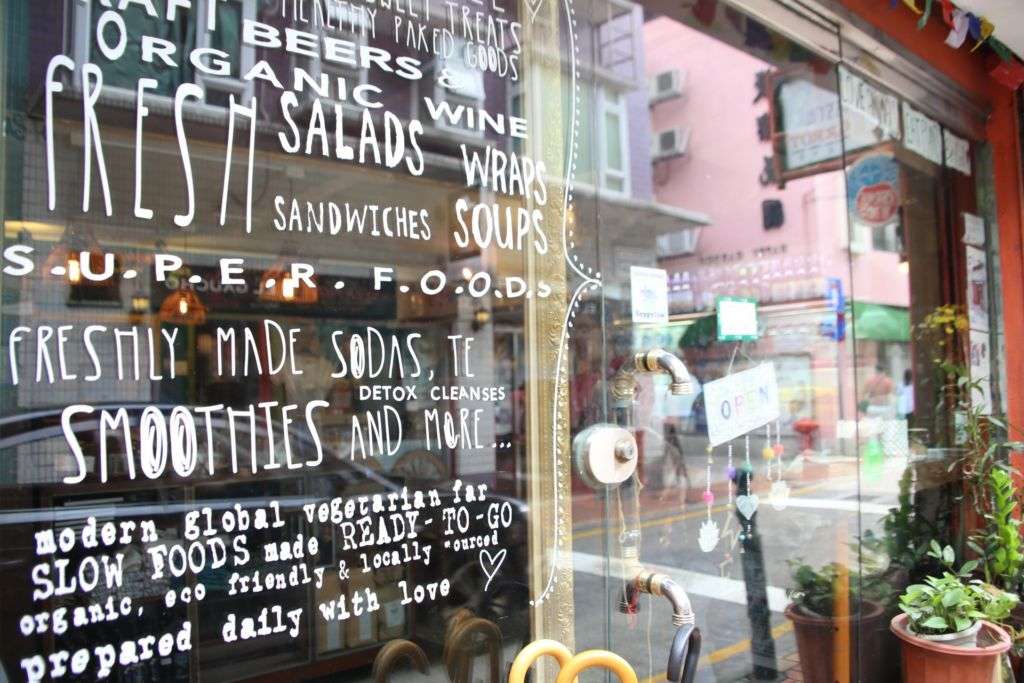 SWEET TREATS
HEALTHY BAKED GOODS
CRAFT BEERS &
ORGANIC WINE
FRESH SALADS WRAPS
SANDWICHES SOUPS
S.U.P.E.R. F.O.O.D.S
FRESHLY MADE SODAS, TE
DETOX CLEANSES
SMOOTHIES AND MORE...
modern global vegetarian far
SLOW FOODS made READY-TO-GO
organic, eco friendly & locally ourced
prepared daily with love
OPEN